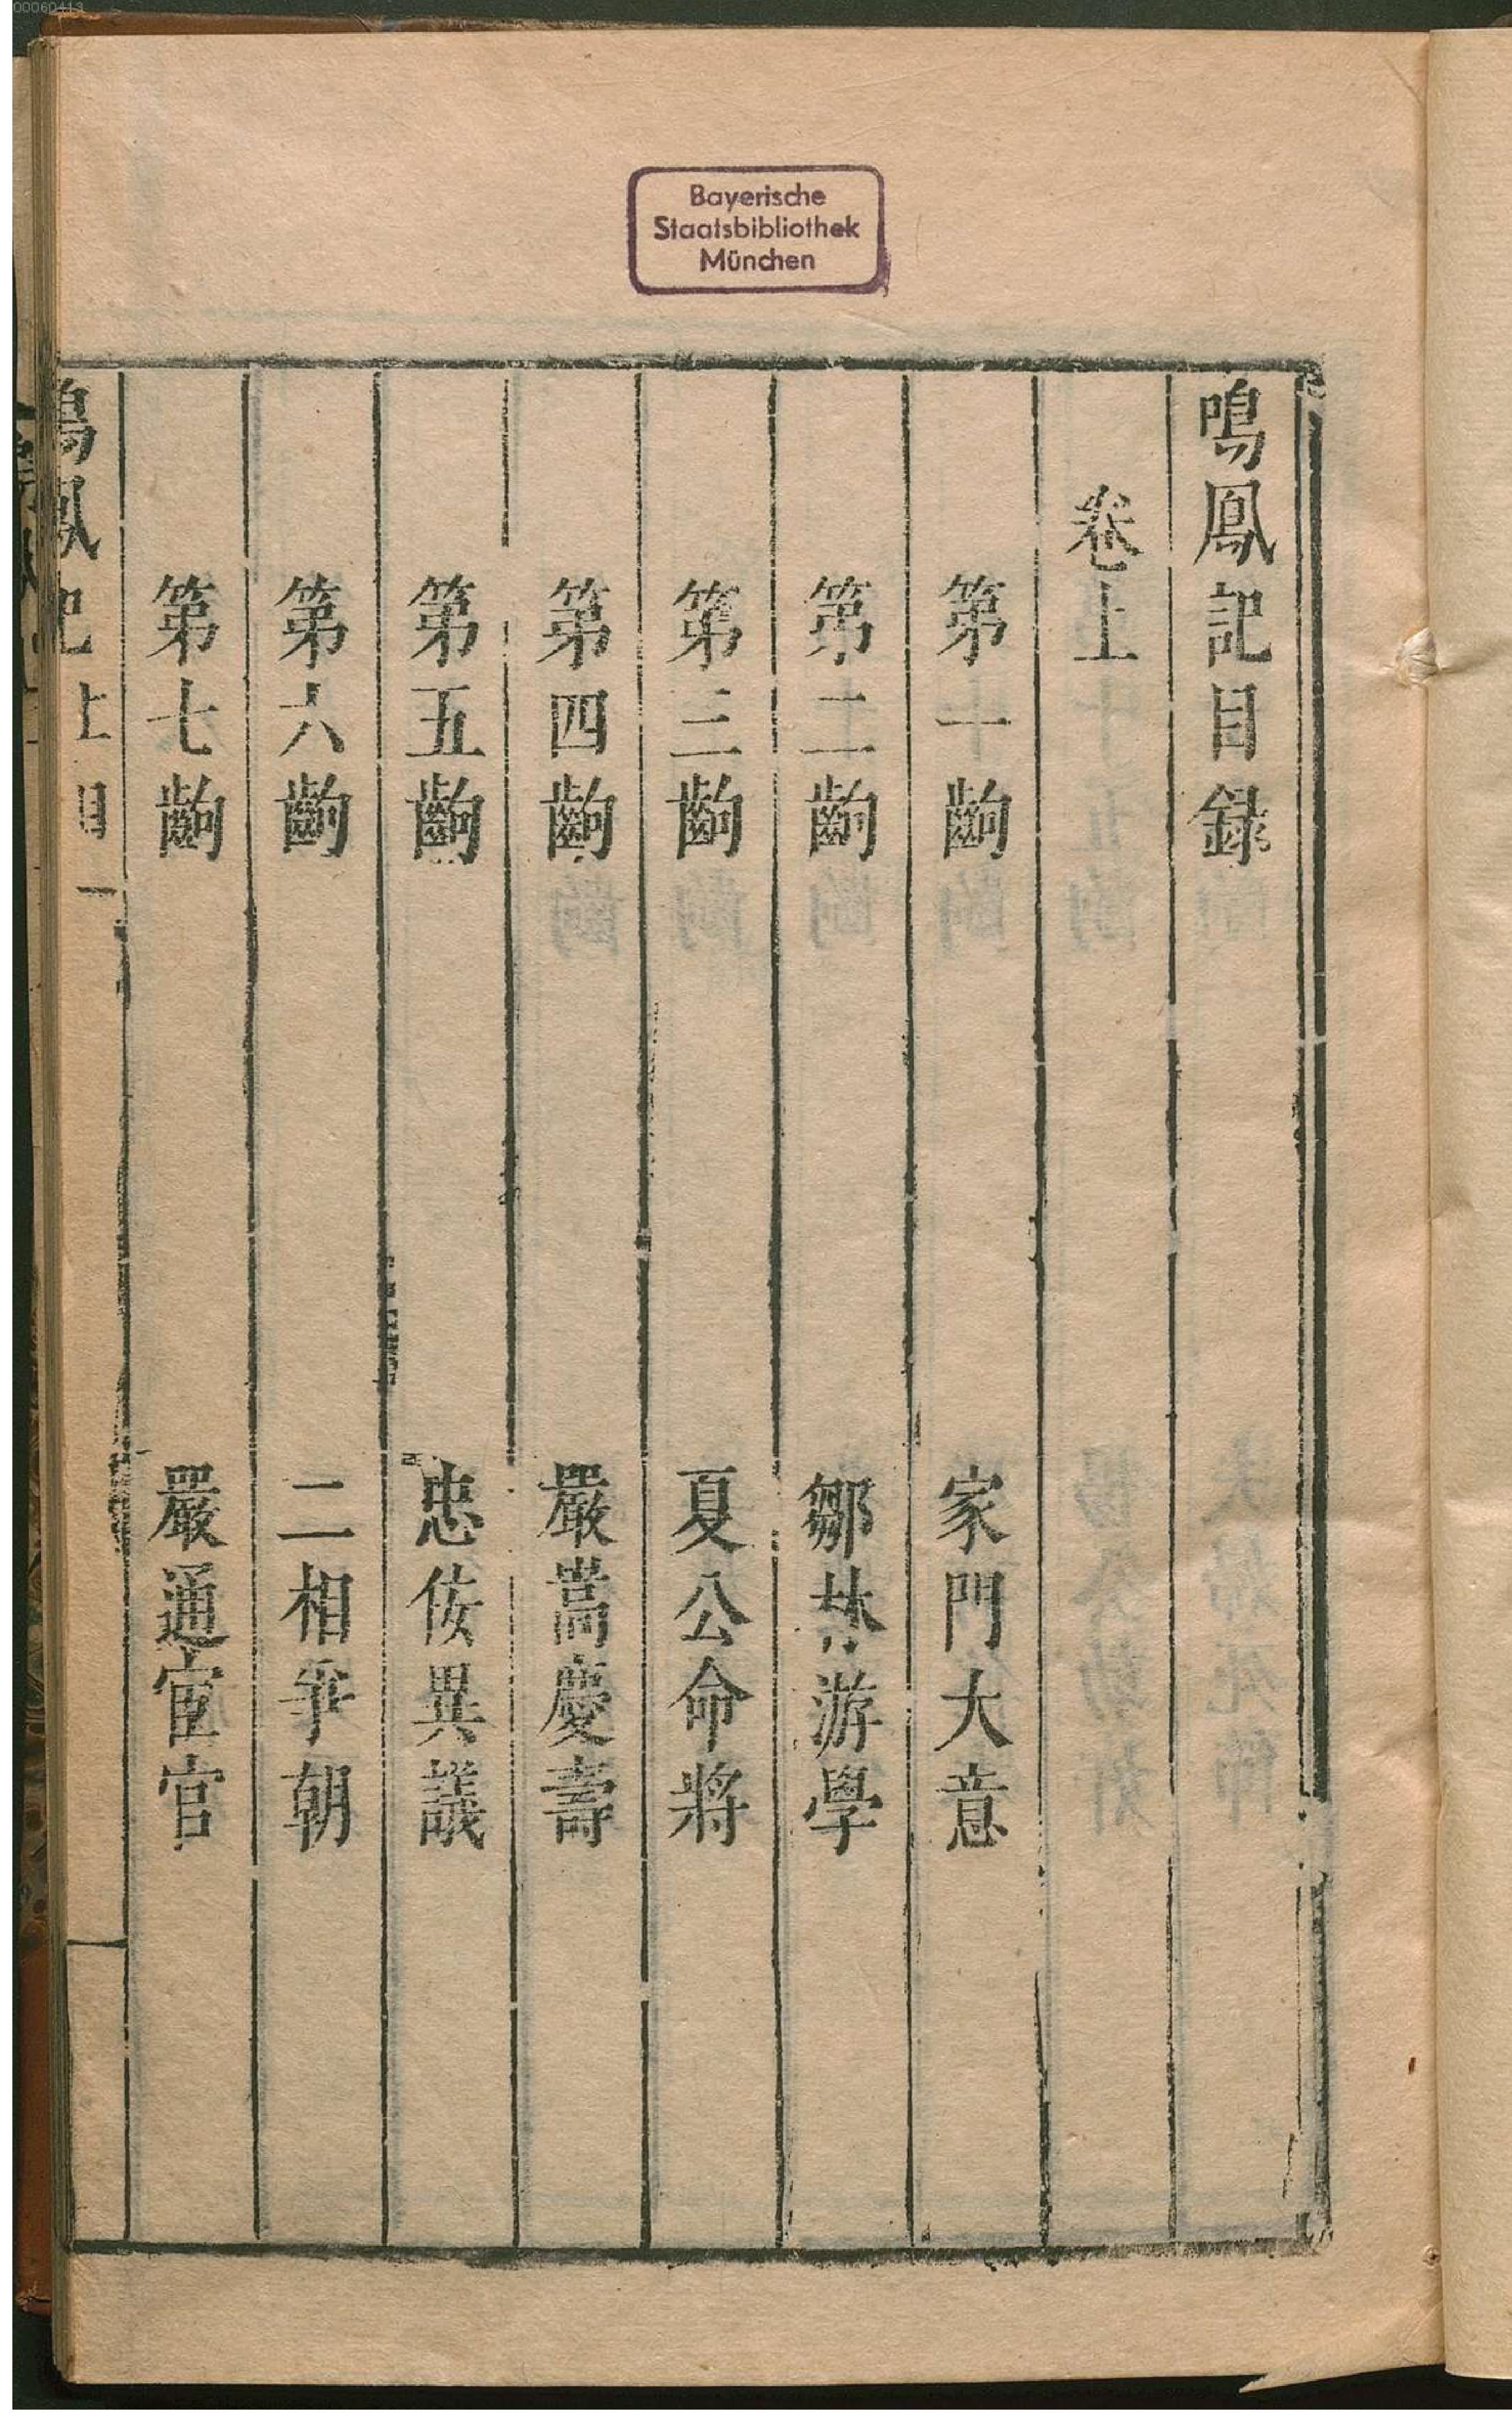 00060413
Bayerische
Staatsbibliothek
München
鳴鳳記目録
卷上
第一齣 家門大意
第二齣 鄒林游學
第三齣 夏公命將
第四齣 嚴嵩慶壽
第五齣 忠佞異議
第六齣 二相爭朝
第七齣 嚴通宦官
鳴鳳記 上目 一